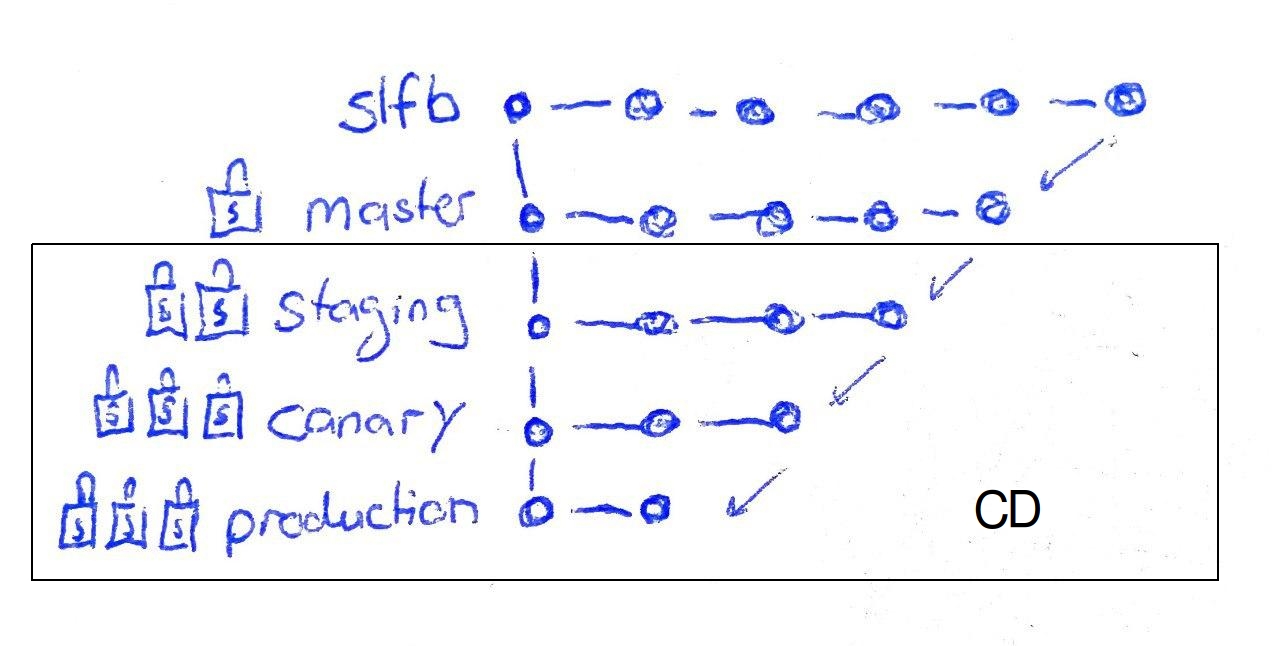 slfb
S master
S S staging
S S S canary
S S S production
CD